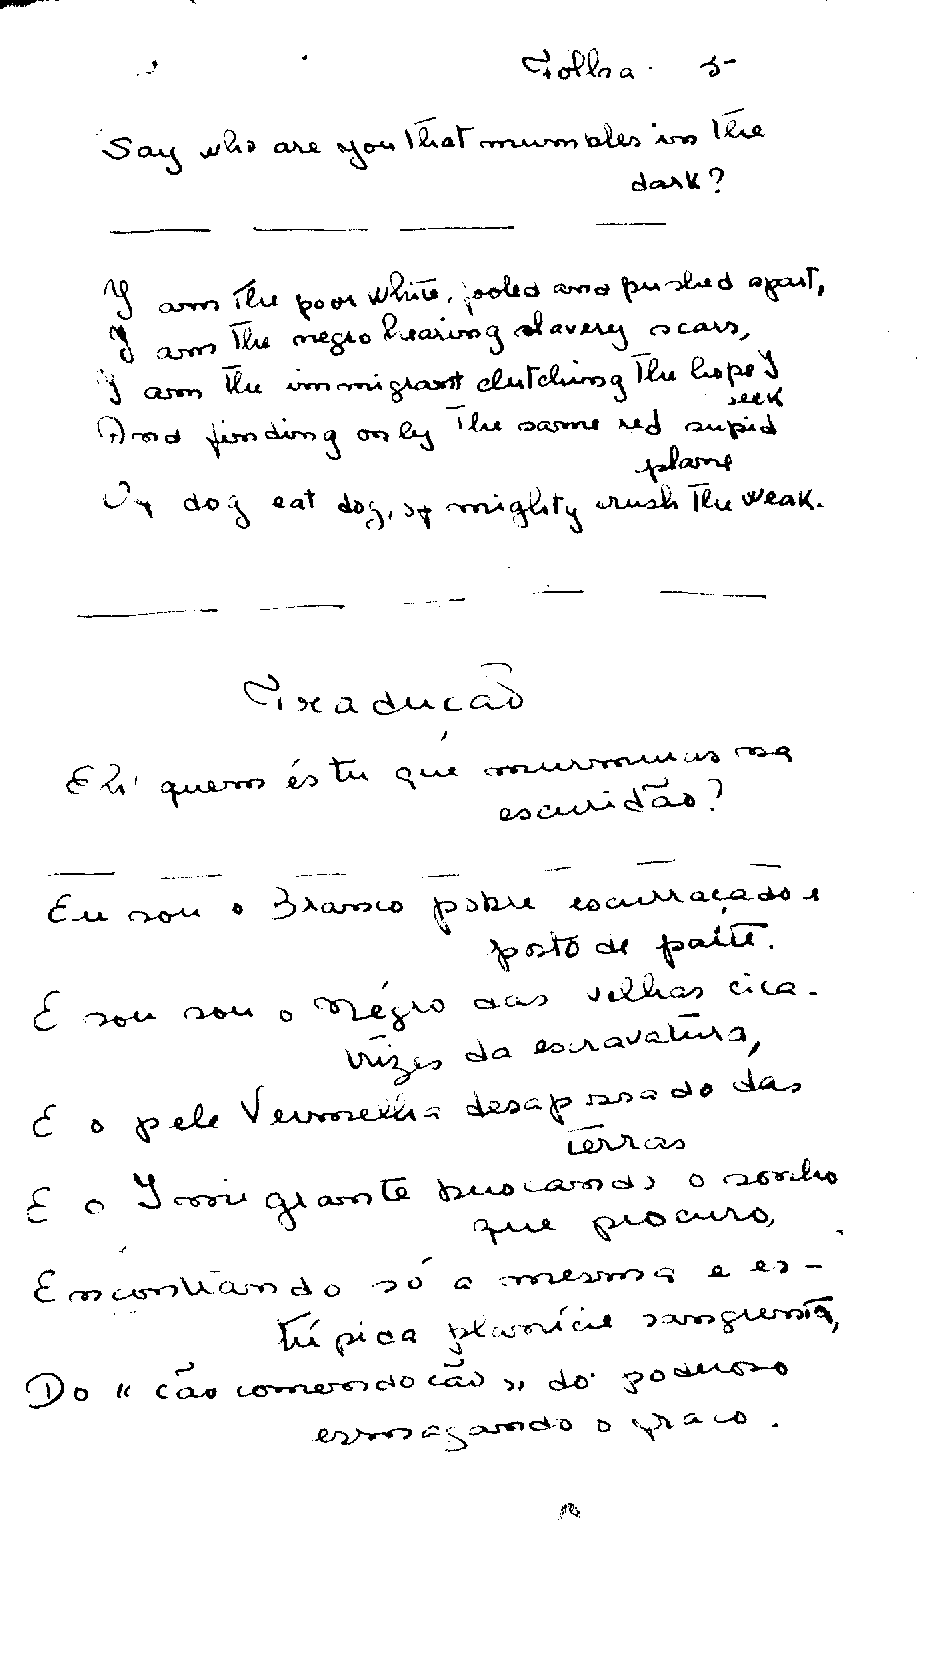 Folha 5-
Say who are you that mumbles in the
dark?
I am the poor white, fooled and pushed apart,
I am the negro bearing slavery scars,
I am the immigrant clutching the hope I
seek
And finding only the same red supid
plane
Of dog eat dog, of mighty crush the weak.
Tradução
Eh! quem és tu que murmuras na
escuridão?
Eu sou o Branco pobre escurraçado e
posto de parte.
E sou sou o négro das velhas cica-
trizes da escravatura,
E o pele Vermelha desapossado das
terras
E o Imigrante buscando o sonho
que procuro,
Encontrando só a mesma e es-
túpida planície sangrenta,
Do "cão comendo cão" do poderoso
esmagando o fraco.